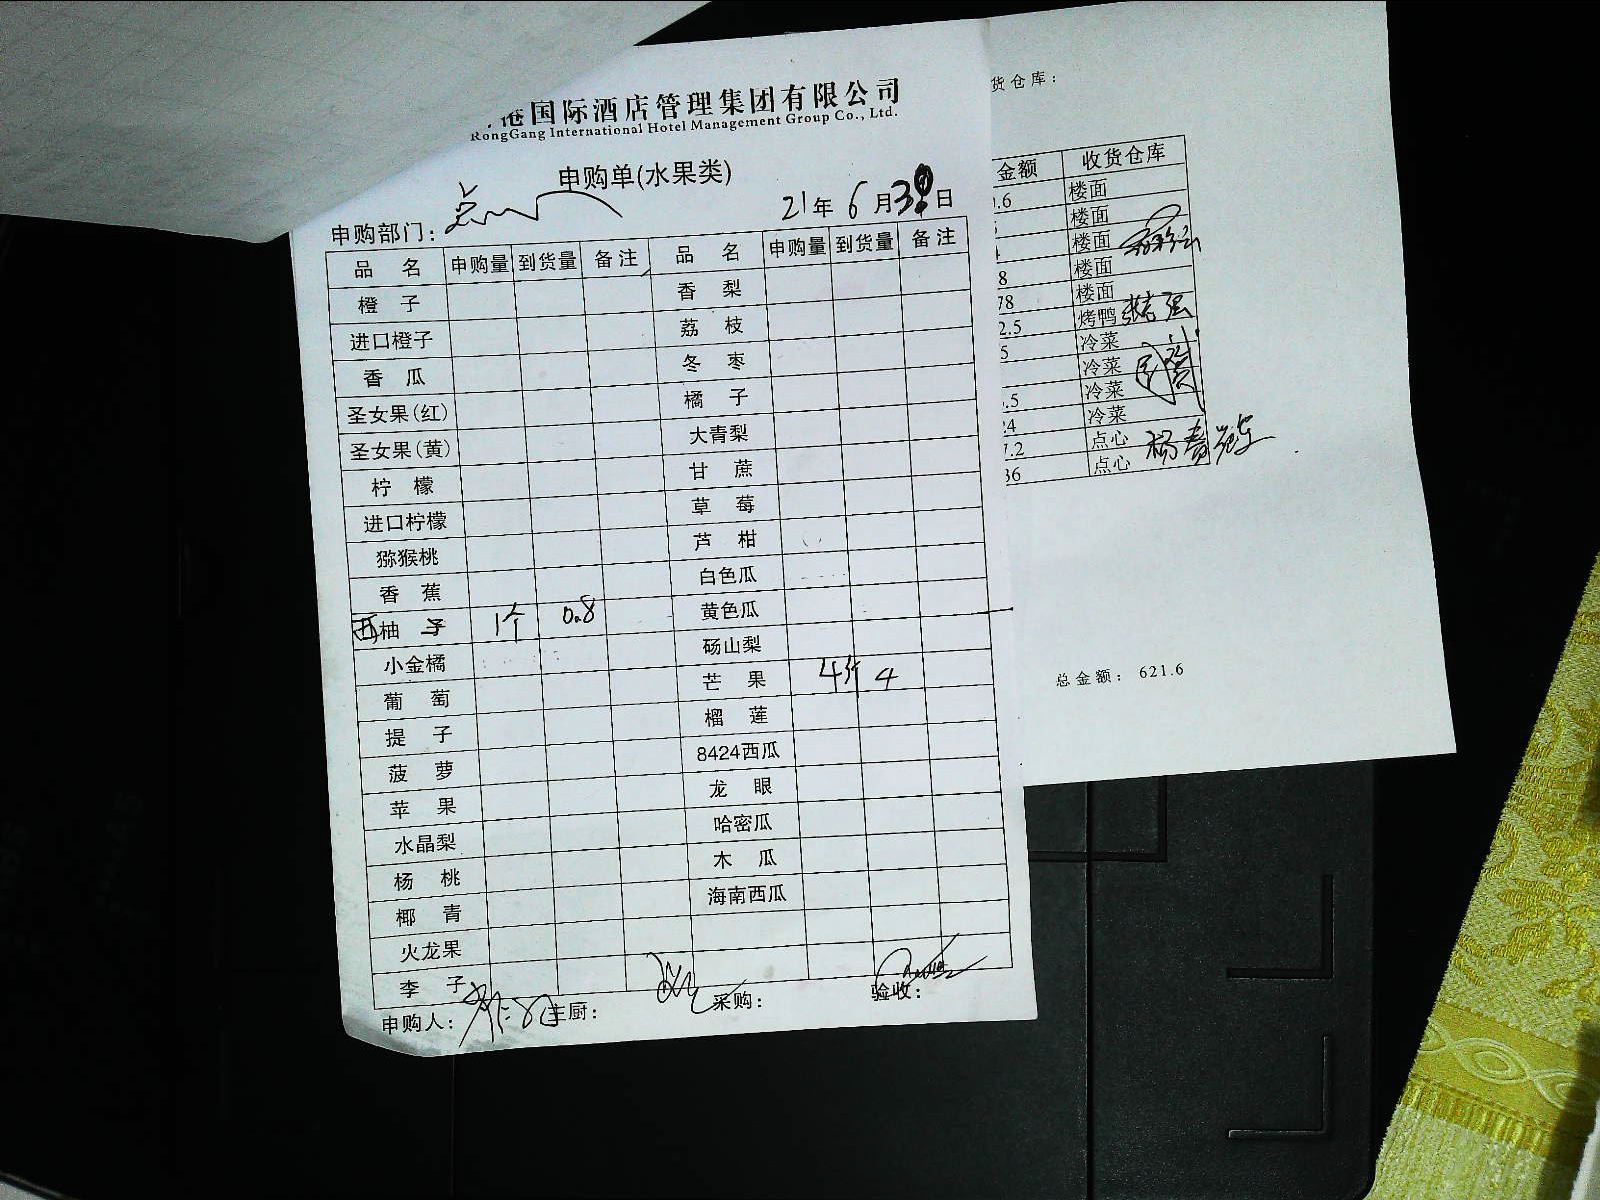 港国际酒店管理集团有限公司
RongGang International Hotel Management Group Co., Ltd.
申购单(水果类)
申购部门: 点心 21年6月30日
品名 申购量 到货量 备注 品名 申购量 到货量 备注
橙子 香梨
进口橙子 荔枝
香瓜 冬枣
圣女果(红) 橘子
圣女果(黄) 大青梨
柠檬 甘蔗
进口柠檬 草莓
猕猴桃 芦柑
香蕉 白色瓜
西柚子 1个 0.8 黄色瓜
小金橘 砀山梨
葡萄 芒果 4斤 4
提子 榴莲
菠萝 8424西瓜
苹果 龙眼
水晶梨 哈密瓜
杨桃 木瓜
椰青 海南西瓜
火龙果
李子
申购人: 主厨: 采购: 验收:
货仓库:
金额 收货仓库
.6 楼面
楼面
楼面
8 楼面
78 楼面
2.5 烤鸭
5 冷菜
冷菜
.5 冷菜
24 冷菜
7.2 点心
36 点心
总金额: 621.6